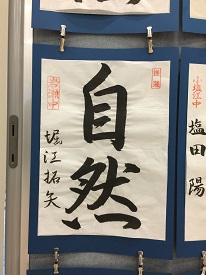 自然
堀江拓矢
小塩江中
塩田陽